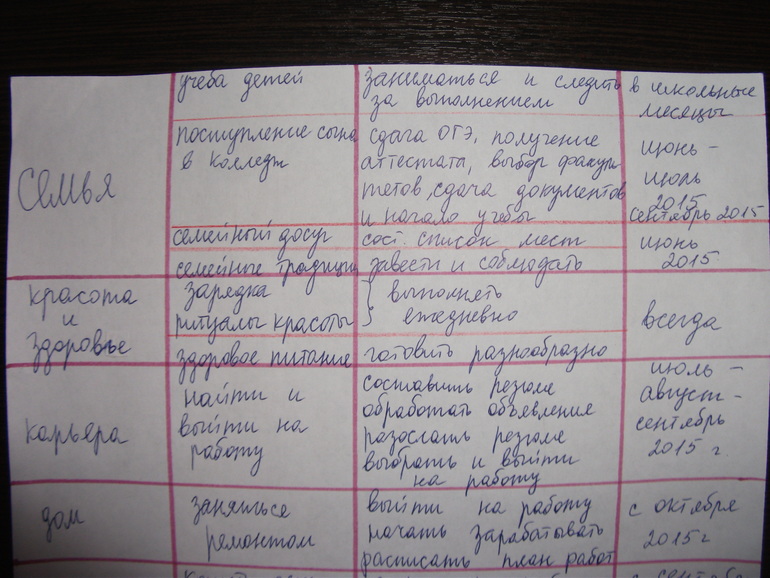 учеба детей
заниматься и следить
за выполнением
в школьные
месяцы
Семья
поступление сына
в колледж
сдача ОГЭ, получение
аттестата, выбор факуль
тетов, сдача документов
и начало учебы
июнь -
июль
2015
сентябрь 2015
семейный досуг
сост. список мест
июнь
2015
семейные традиции
завести и соблюдать
красота
и
здоровье
зарядка
ритуалы красоты
} выполнять
ежедневно
всегда
здоровое питание
готовить разнообразно
карьера
найти и
выйти на
работу
составить резюме
обработать объявление
разослать резюме
выбрать и выйти
на работу
июль -
август -
сентябрь
2015 г
дом
заняться
ремонтом
выйти на работу
начать зарабатывать
расписать план работ
с октября
2015 г